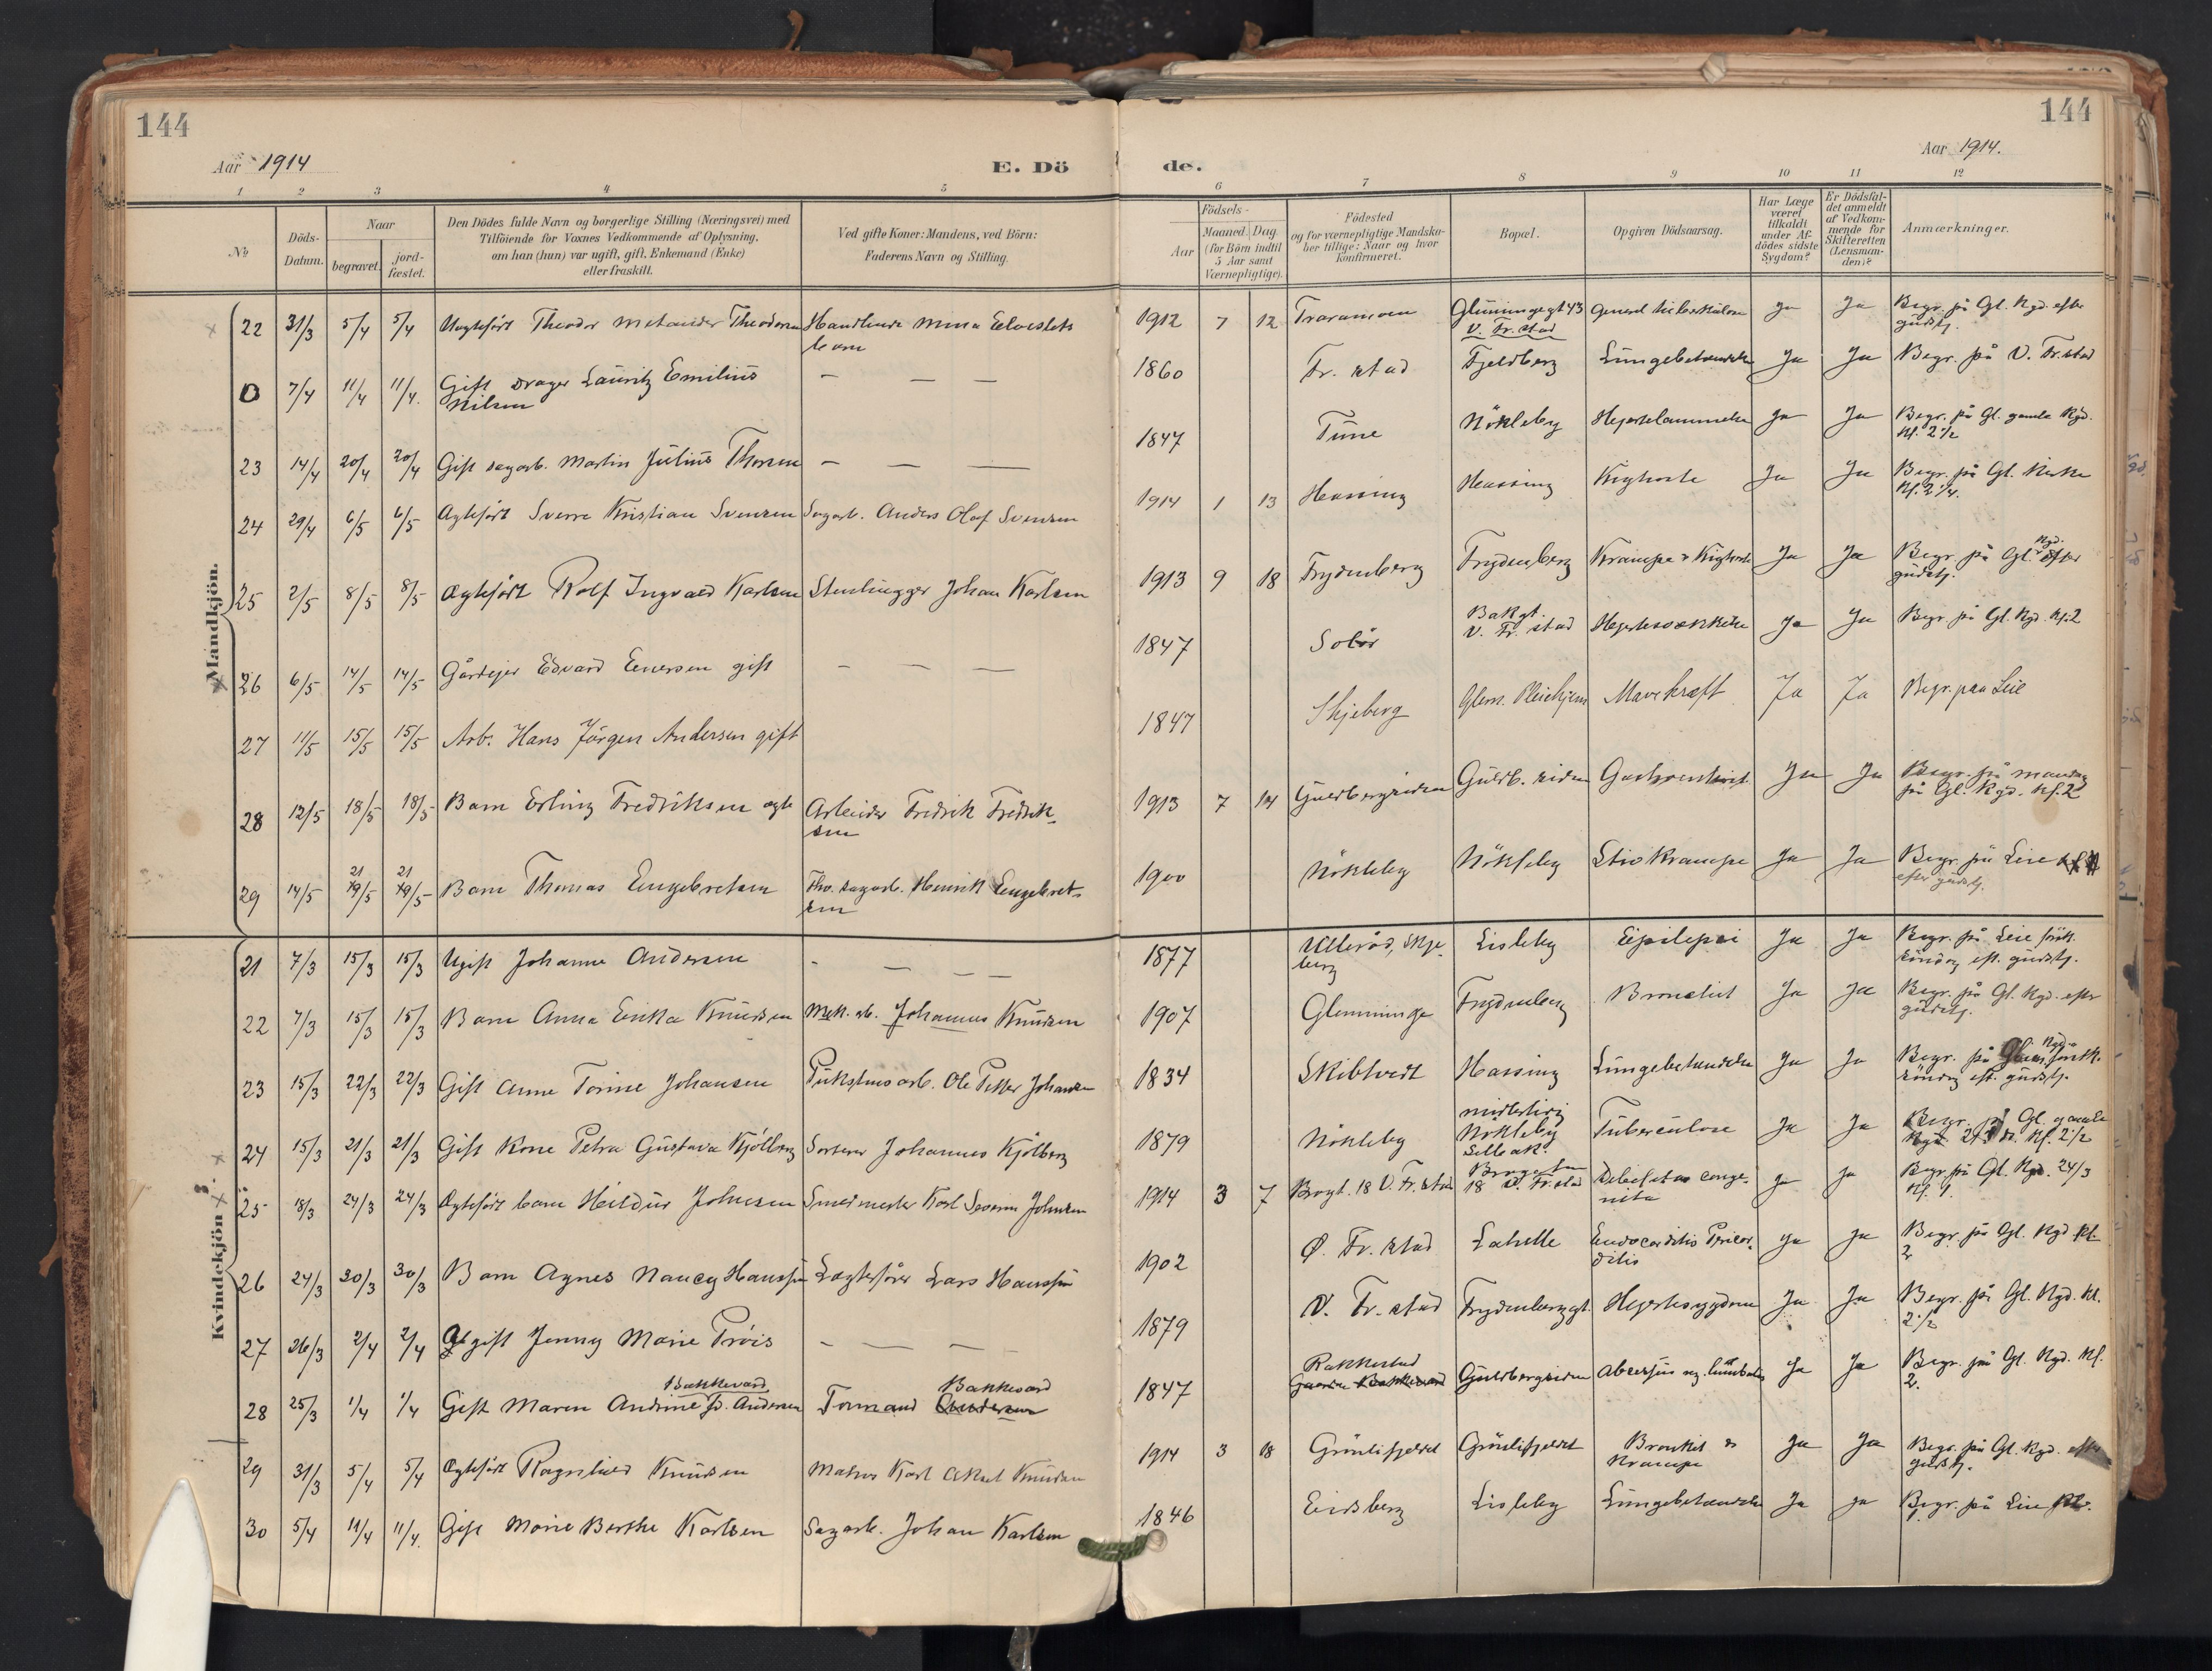 144
Aar 1914
E. Dö
1 2 3 4 5
No
Döds-
Datum.
Naar
begravet.
jord-
fæstet.
Den Dödes fulde Navn og borgerlige Stilling (Næringsvei) med
Tilföiende for Voxnes Vedkommende af Oplysning,
om han (hun) var ugift, gift, Enkemand (Enke)
eller fraskilt.
Ved gifte Koner: Mandens, ved Börn:
Faderens Navn og Stilling.
Mandkjön.
22 31/3 5/4 5/4 Theodor
barn
0 7/4 11/4 11/4. Gift Drager Lauritz Emilius — — —
Nilsen
23 14/4 20/4 20/4 Gift sagarb. Martin Julius Thorsen — — —
24 29/4 6/5 6/5 Ægtefödt Sverre Kristian Svensen Sagarb. Anders Olaf Svensen
25 2/5 8/5 8/5 Ægtefödt Rolf Ingvald Karlsen Stenhugger Johan Karlsen
26 6/5 14/5 14/5 Gårdejer Edvard Enersen gift — — —
27 11/5 15/5 15/5 Arb. Hans Jörgen Andersen gift
28 12/5 18/5 18/5 Barn Erling Fredriksen ægte Arbeider Fredrik Fredrik-
sen
21 21
29 14/5 19/5 19/5 Barn Thomas Engebretsen Fhv. sagarb. Henrik Engebret-
sen
Kvindekjön
21 7/3 15/3 15/3 Ugift Johanne Andersen - — — —
22 7/3 15/3 15/3 Barn Anna Erika Knudsen Mek. arb. Johannes Knudsen
23 15/3 22/3 22/3 Gift Anne Torine Johansen Ole Petter Johansen
24 15/3 21/3 21/3 Gift Kone Petra Gustava Kjölberg Sorterer Johannes Kjölberg
25 18/3 24/3 24/3 Ægtefödt barn Heldur Johnsen Smedmester Karl Severin Johnsen
26 24/3 30/3 30/3 Barn Agnes Nancy Hanssen Lægterfører Lars Hanssen
27 26/3 2/4 2/4 gift Jenny Marie Tröis — — — —
Bakkevard Bakkevard
28 25/3 1/4 1/4 Gift Maren Andrine Andersen Formand Andersen
29 31/3 5/4 5/4 Ægtefödt Ragnhild Knudsen Matros Karl Aksel Knudsen
30 5/4 11/4 11/4. Gift Marie Berthe Karlsen Sagarb. Johan Karlsen
144
Aar 1914.
de.
6 7 8 9 10 11 12
Födsels-
Aar
Maaned. Dag
(for Börn indtil
5 Aar samt
Værnepligtige).
Födested
og for værnepligtige Mandska-
ber tillige: Naar og hvor
Konfirmeret.
Bopæl.
Opgiven Dödsaarsag.
Har Læge
været
tilkaldt
under Af-
dödes sidste
Sygdom?
Er Dödsfal-
det anmeldt
af Vedkom-
mende for
Skifteretten
(Lensman-
den)?
Anmærkninger.
1912 7 12 Glemmingegt 43 Ja Ja Begr. på Gl. Kgd. efter
V. Fr.stad gudstj.
1860 Fr. stad Fjeldberg Lungebetændelse Ja Ja Begr. på V. Fr.stad
1847 Tune Nökleby Hjertelammelse Ja Ja Begr. på Gl. gamle Kgd.
Kl. 2 1/2
1914 1 13 Hassing Hassing Kighoste Ja Ja Begr. på Gl. Kirke
Kl. 2 1/4.
1913 9 18 Frydenberg Frydenberg Krampe & Kighoste Ja Ja Begr. på Gl. Kgd. efter
gudstj.
1847 Solör Bakgt. V. Fr. stad Hjertesvækkelse Ja Ja Begr. på Gl. Kgd. Kl. 2
1847 Skjeberg Glem. Pleiehjem Mavekræft Ja Ja Begr. paa Leie
1913 7 14 Guldbergsiden Guldb. siden Ja Ja Begr. på mandag
på Gl. Kgd. Kl. 2
1900 Nökleby Nökleby Ja Ja Begr. på Leie
efter gudstj.
1877 Ulleröd, Skje- Lisleby Epilepsi Ja Ja Begr. på Leie förstk.
berg söndag eft. gudstj.
1907 Glemminge Frydenberg Bronchit Ja Ja Begr. på Gl. Kgd. efter
gudstj.
1834 Skibtvedt Hassing Lungebetændelse Ja Ja Begr. på Kgd. förstk.
söndag eft. gudstj.
1879 Nökleby midlertidig Nökleby Tuberculose Ja Ja Begr. på Gl. gamle
Kgd Kl. 2 1/2
1914 3 7 Brogt. 18 V. Fr.stad 18 V. Fr.stad Debilitas conge- Ja Ja Begr. på Gl. Kgd. 24/3
nita Kl. 1.
1902 Ø. Fr. stad Lahelle Endocarditis Pericar- Ja Ja Begr. på Gl. Kgd Kl.
ditis 2
1879 V. Fr. stad Frydenberggt. Hjertesygdom Ja Ja Begr. på Gl. Kgd. Kl.
2 1/2
1847 Rakkestad Guldbergsiden Ja Ja Begr. på Gl. Kgd. Kl.
2.
1914 3 18 Grönlifjeldet Grönlifjeldet Bronkit & Ja Ja Begr. på Gl. Kgd. efter
Krampe gudstj.
1846 Eidsberg Lisleby Lungebetændelse Ja Ja Begr. på Leie